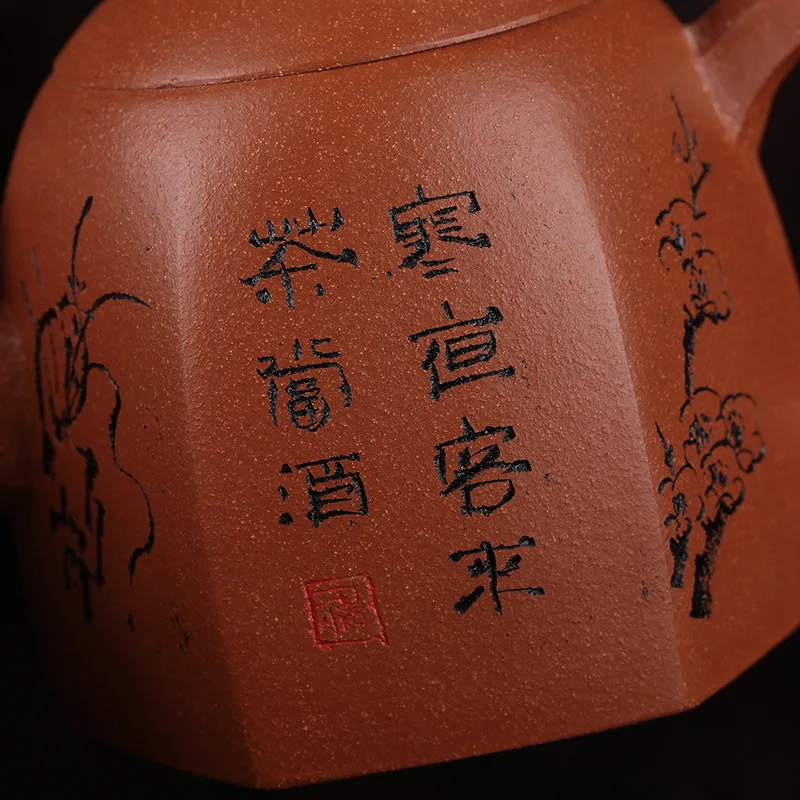 寒亱客来
茶當酒